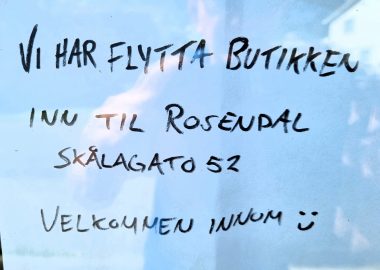 VI HAR FLYTTA BUTIKKEN
INN TIL ROSENDAL
SKÅLAGATO 52
VELKOMMEN INNOM :)